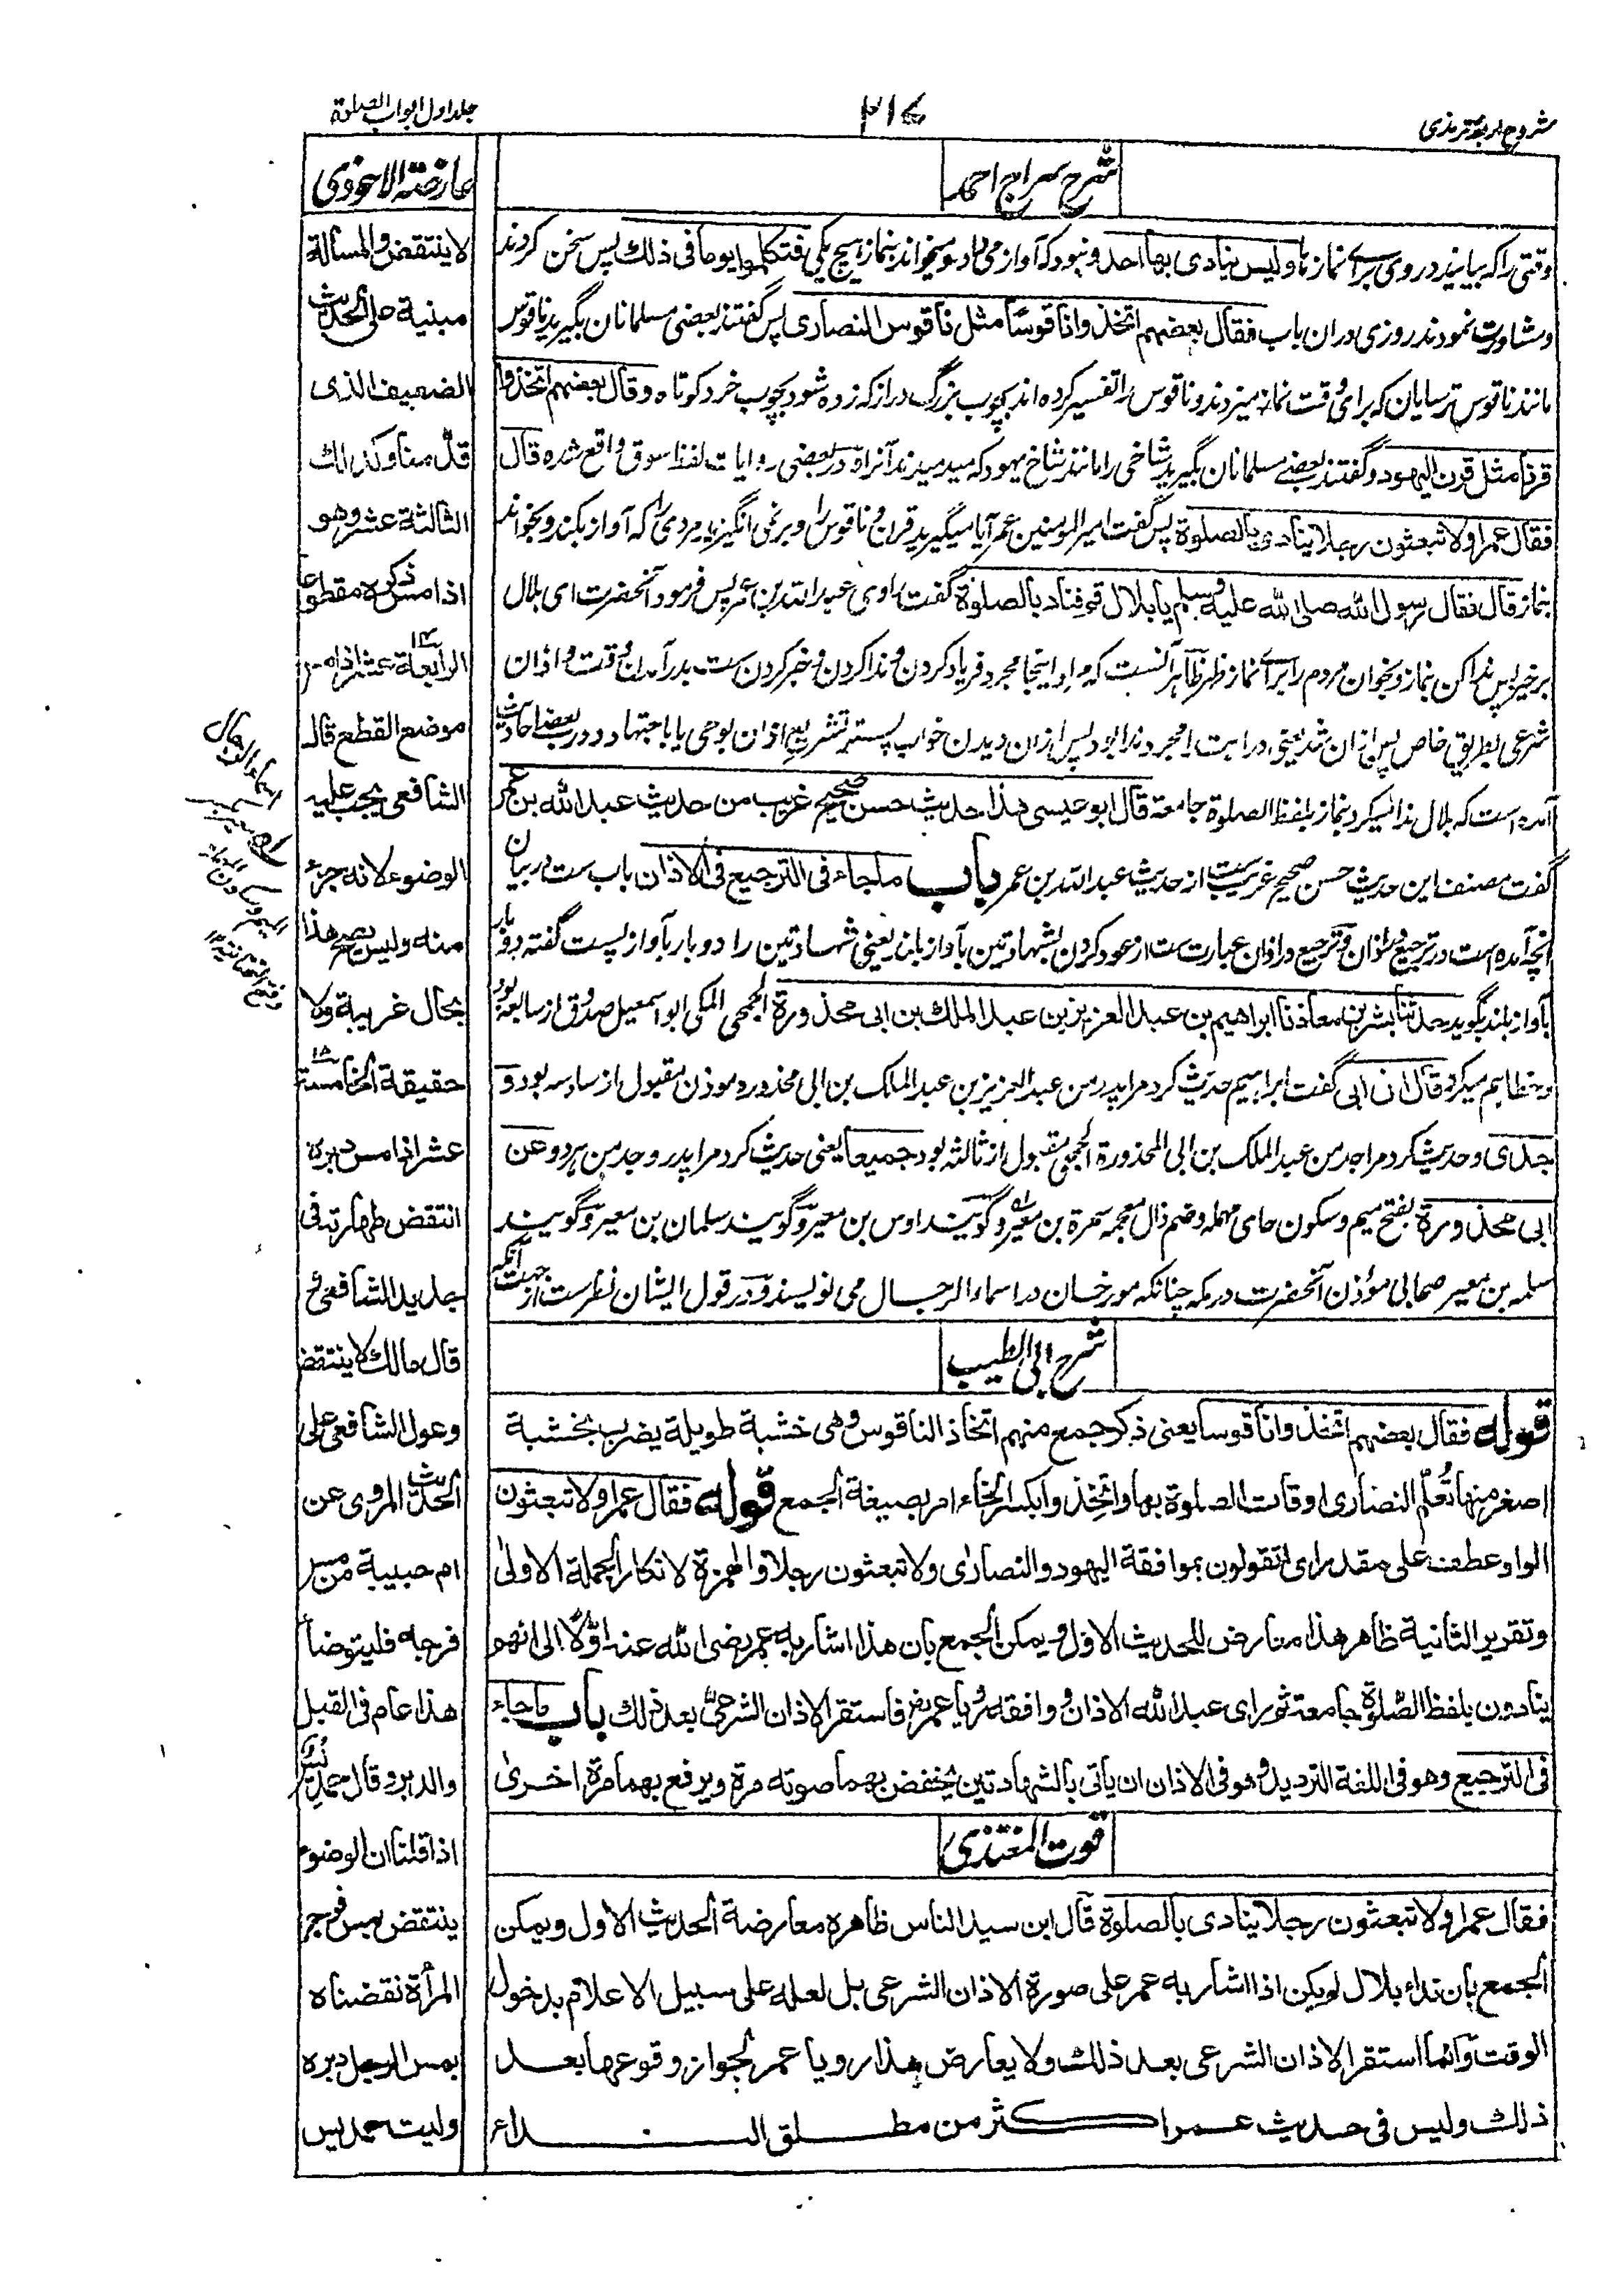 شروح اربعه ترمذی
۲۱۶
جلد اول ابواب الصلوة
شرح سراج احمد
وقتی را که بیایند در وی برای نماز نا ولیس ینادی بها احد و نبود که آواز می داد و میخواند بنماز هیچ یکی فتکلموا یوما فی ذلك پس سخن کردند
و مشاورت نمودند روزی دران باب فقال بعضهم اتخذوا ناقوسا مثل ناقوس النصاری پس گفتند بعضی مسلمانان بگیرید ناقوس
مانند ناقوس ترسایان که برای وقت نماز میزدند و ناقوس را تفسیر کرده اند بچوب بزرگ دراز که زده شود بچوب خرد کوتاه وقال بعضهم اتخذوا
قرنا مثل قرن الیهود و گفتند بعضے مسلمانان بگیرید شاخی را مانند شاخ یهود که میدمیدند آنرا و در بعضی روایات لفظ سوق واقع شده قال
فقال عمر اولا تبعثون رجلا ینادی بالصلوة پس گفت امیر المومنین عمر آیا میگیرید قرن و ناقوس را و برنمی انگیزید مردی را که آواز بکند و بخواند
بنماز قال فقال رسول الله صلی الله علیه وسلم یا بلال قم فناد بالصلوة گفت راوی عبد الله بن عمر پس فرمود آنحضرت ای بلال
برخیز پس ندا کن بنماز و بخوان مردم را برای نماز ظهر ظاهر آنست که مراد اینجا مجرد فریاد کردن و ندا کردن و خبر کردن ست بدر آمدن وقت و اذان
شرعی بطریق خاص پس ازان شد یعنی در ابتدا مجرد ندا بود پس ازان دیدن خواب پستر تشریع اذان بوحی یا باجتهاد و در بعض احادیث
آمده است که بلال ندا میکرد بنماز بلفظ الصلوة جامعة قال ابو عیسی هذا حدیث حسن صحیح غریب من حدیث عبد الله بن عمر
گفت مصنف این حدیث حسن صحیح غریبست از حدیث عبد الله بن عمر باب ما جاء فی الترجیع فی الاذان باب ست در بیان
آنچه آمده است در ترجیع در اذان و ترجیع در اذان عبارت ست از عود کردن بشهادتین بآواز بلند یعنی شهادتین را دو بار بآواز پست گفته دو بار
بآواز بلند بگوید حدثنا بشر بن معاذ نا ابراهیم بن عبد العزیز بن عبد الملك بن ابی محذورة الجمحی المکی ابو اسمعیل صدوق از سابعه بود
و خطا هم میکرد قال ان ابی گفت ابراهیم حدیث کرد مرا پدر من عبد العزیز بن عبد الملک بن ابی محذوره موذن مقبول از سادسه بود و
جدی و حدیث کرد مرا جد من عبد الملک بن ابی المحذورة الجمحی مقبول از ثالثه بود جمیعا یعنی حدیث کرد مرا پدر و جد من هر دو عن
ابی محذورة بفتح میم و سکون حای مهمله و ضم ذال معجمه سمرة بن معیر و گویند اوس بن معیر و گویند سلمان بن معیر و گویند
سلمه بن معیر صحابی مؤذن آنحضرت در مکه چنانکه مورخان در اسماء الرجال می نویسند و در قول ایشان نظر ست از جهت آنکه
شرح ابی الطیب
قوله فقال بعضهم اتخذوا ناقوسا یعنی ذکر جمع منهم اتخاذ الناقوس وهی خشبة طویلة یضرب بخشبة
اصغر منها تُعلِم النصاری اوقات الصلوة بها واتخذوا بکسر الخاء امر بصیغة الجمع قوله فقال عمر اولا تبعثون
الواو عطف علی مقدر ای اتقولون بموافقة الیهود والنصاری ولا تبعثون رجلا والهمزة لانکار الجملة الاولی
وتقریر الثانیة ظاهر هذا معارض للحدیث الاول ویمکن الجمع بان هذا اشار به عمر رضی الله عنه اوّلا الی انهم
ینادون بلفظ الصلوة جامعة ثم رای عبد الله الاذان و وافقه رؤیا عمر رض فاستقر الاذان الشرعی بعد ذلك باب ما جاء
فی الترجیع وهو فی اللغة التردید وهو فی الاذان ان یاتی بالشهادتین یخفض بهما صوته مرة ویرفع بهما مرة اخری
قوت المغتذی
فقال عمر اولا تبعثون رجلا ینادی بالصلوة قال ابن سید الناس ظاهره معارضة الحدیث الاول ویمکن
الجمع بان نداء بلال لم یکن اذا اشار به عمر علی صورة الاذان الشرعی بل لعله علی سبیل الاعلام بدخول
الوقت وانما استقر الاذان الشرعی بعد ذلك ولا یعارض هذا رویا عمر لجواز وقوعها بعد
ذلك ولیس فی حدیث عمر اکثر من مطلق النداء
عارضة الاحوذی
لا ینتقض والمسألة
مبنیة علی الحدیث
الضعیف الذی
قدّمنا وکذلك
الثالثة عشر وهو
اذا مس ذکره مقطوعا
الرابعة عشر اذا مس
موضع القطع قال
الشافعی یجب علیه
الوضوء لانه جزء
منه ولیس یصح هذا
بحال غریبة ولا
حقیقة الخامسة
عشر اذا مس دبره
انتقض طهارته فی
جدید الشافعی رح
قال مالك لا ینتقض
وعول الشافعی علی
الحدیث المروی عن
ام حبیبة من مس
فرجه فلیتوضأ
هذا عام فی القبل
والدبر وقال حمدیس
اذا قلنا ان الوضوء
ینتقض بمس فرج
المرأة نقضناه
بمس الرجل دبره
ولیت حمدیس